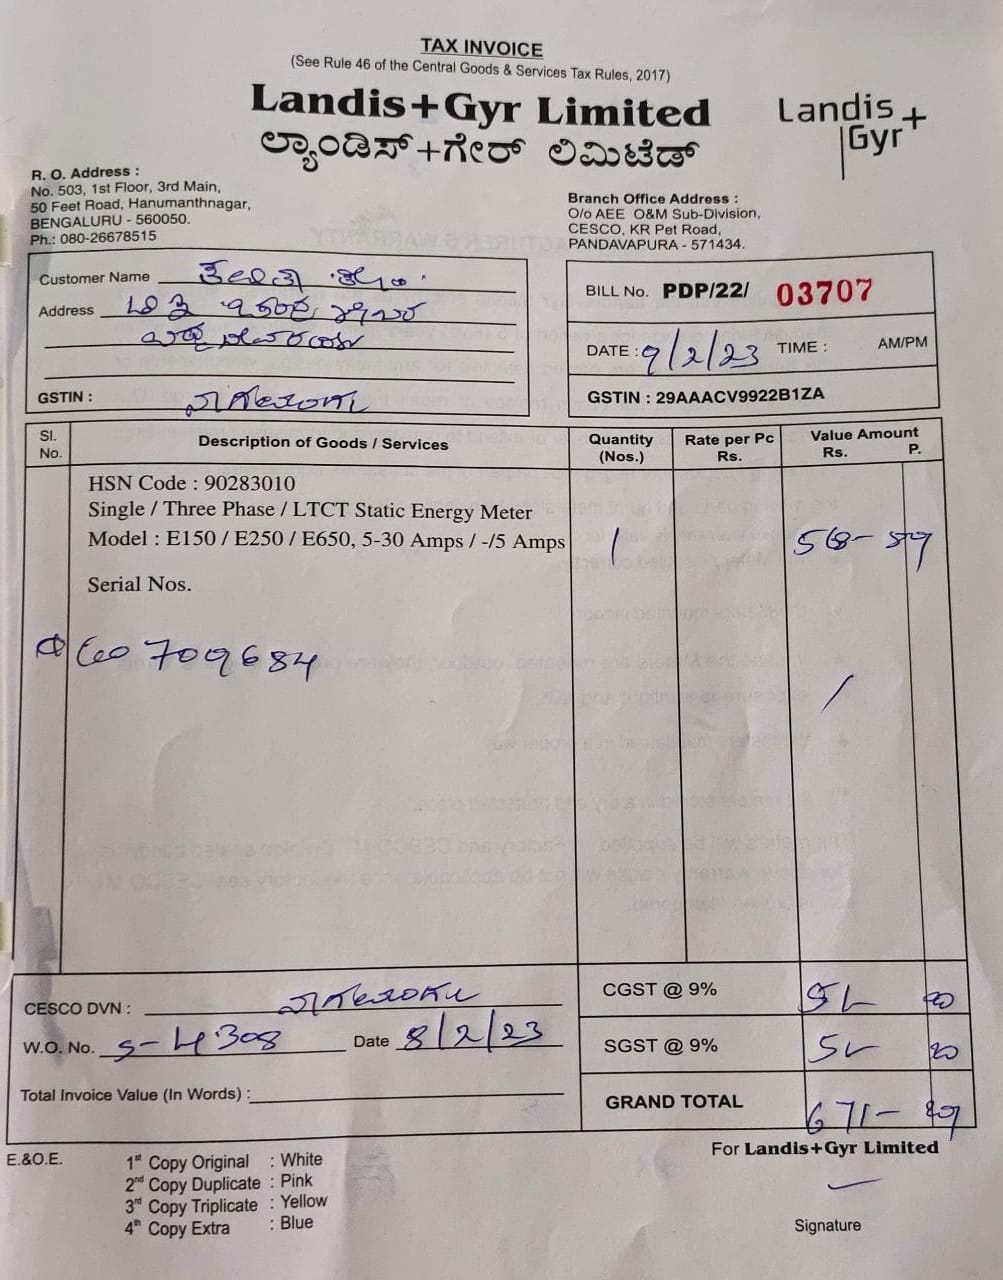 TAX INVOICE
(See Rule 46 of the Central Goods & Services Tax Rules, 2017)
Landis+Gyr Limited
ಲ್ಯಾಂಡಿಸ್+ಗೇರ್ ಲಿಮಿಟೆಡ್
Landis+
Gyr
R. O. Address :
No. 503, 1st Floor, 3rd Main,
50 Feet Road, Hanumanthnagar,
BENGALURU - 560050.
Ph.: 080-26678515
Branch Office Address :
O/o AEE O&M Sub-Division,
CESCO, KR Pet Road,
PANDAVAPURA - 571434.
Customer Name
Address
GSTIN :
BILL No. PDP/22/ 03707
DATE : 9/2/23 TIME : AM/PM
GSTIN : 29AAACV9922B1ZA
Sl. No. Description of Goods / Services Quantity (Nos.) Rate per Pc Rs. Value Amount Rs. P.
HSN Code : 90283010
Single / Three Phase / LTCT Static Energy Meter
Model : E150 / E250 / E650, 5-30 Amps / -/5 Amps 1
Serial Nos.
709684
CESCO DVN :
CGST @ 9%
W.O. No. S-4308 Date 8/2/23
SGST @ 9%
Total Invoice Value (In Words) :
GRAND TOTAL 671-
E.&O.E.
For Landis+Gyr Limited
1st Copy Original : White
2nd Copy Duplicate : Pink
3rd Copy Triplicate : Yellow
4th Copy Extra : Blue
Signature